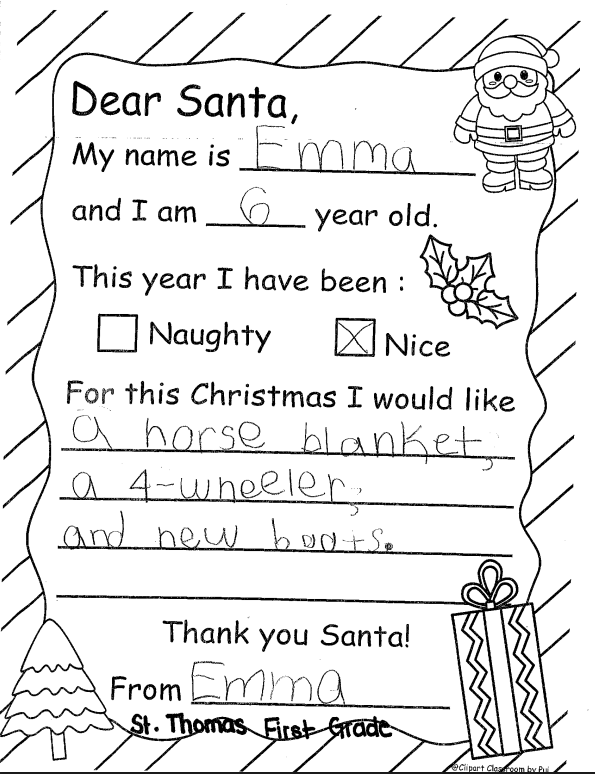 Dear Santa,
My name is Emma
and I am 6 year old.
This year I have been :
Naughty Nice
For this Christmas I would like
a horse blanket,
a 4-wheeler,
and new boots.
Thank you Santa!
From Emma
St. Thomas First Grade
@Clipart Classroom by Pui